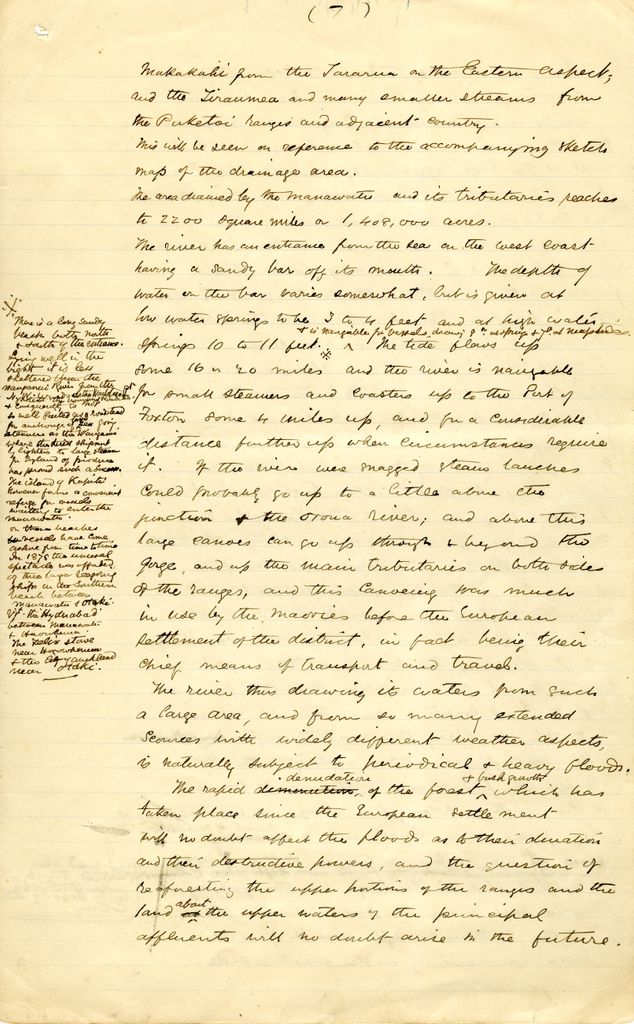 (7)
Makakahi from the Tararua on the Eastern aspect;
and the Tiraumea and many smaller streams from
the Puketoi ranges and adjacent country.
This will be seen on reference to the accompanying sketch
map of the drainage area.
The area drained by the Manawatu and its tributaries reaches
to 2200 square miles or 1,408,000 acres.
The river has an entrance from the sea on the west coast
having a sandy bar off its mouth. The depth of
water on the bar varies somewhat, but is given at
low water springs to be 3 to 4 feet and at high water
& is navigable for vessels drawing 8ft at springs & 7ft at neap tides.
springs 10 to 11 feet. ※ ^ The tide flows up
some 16 or 20 miles and the river is navigable
for small steamers and coasters up to the Port of
Foxton some 4 miles up, and for a considerable
distance further up when circumstances require
it. If the river were snagged steam launches
could probably go up to a little above the
junction of the Oroua river; and above this
large canoes can go up through & beyond the
Gorge, and up the main tributaries on both sides
of the ranges, and this canoeing was much
in use by the Maories before the European
settlement of the district, in fact being their
chief means of transport and travel.
The river thus drawing its waters from such
a large area, and from so many extended
sources with widely different weather aspects,
is naturally subject to periodical & heavy floods.
denudation & bush growth
The rapid diminution of the forest ^ which has
taken place since the European settlement
will no doubt affect the floods as to their duration
and their destructive powers, and the question of
reaforesting the upper portions of the ranges and the
about
land the upper waters of the principal
affluents will no doubt arise in the future.
※
There is a long sandy
beach both north
& south of the entrance.
Lying well in the
bight it is less
sheltered than the
Wanganui River from the
& consequently is not
so well suited as a roadstead
for anchorage of
steamers as the Wanganui
where the shipment
by lighters to large steamers
to England of produce
has proved such a success.
The island of Kapiti
however forms a convenient
refuge for vessels
waiting to enter the
Manawatu.
On these beaches
vessels have come
ashore from time to time
In 1878 the unusual
spectacle was afforded
of three large seagoing
ships on the Southern
beach between
Manawatu & Otaki.
viz. the Hydrabad
between Manawatu
& Horowhenua.
The Felix Stowe
near Horowhenua
& the City of Auckland
near Otaki.